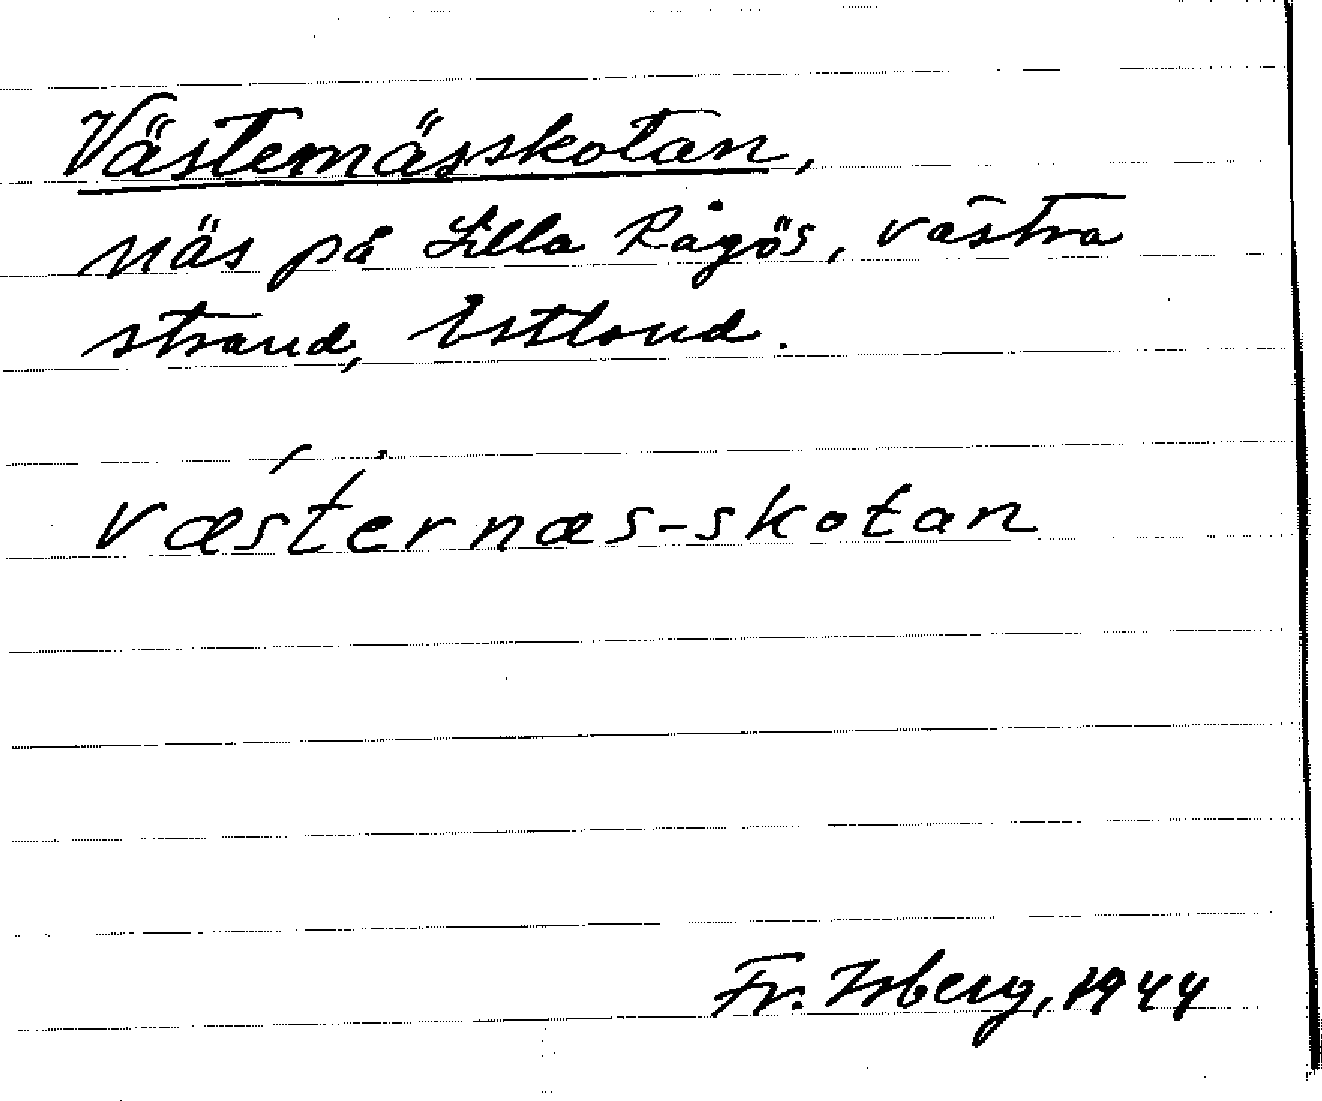 Västernässkotan,
näs på Lilla Rågös, västra
strand, Estland.
væsternæs-skotan
Fr. Isberg, 1944